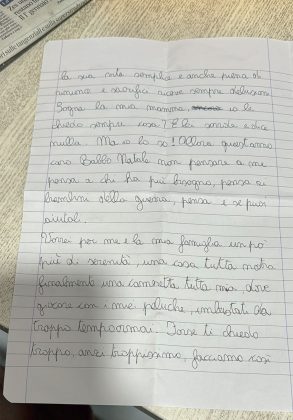 la sua vita semplice e anche piena di
rinunce e sacrifici riceve sempre delusioni
Sogna la mia mamma, io le
chiedo sempre cosa? E lei sorride e dice
nulla. Ma io lo so! Allora quest'anno
caro Babbo Natale non pensare a me
pensa a chi ha più bisogno, pensa ai
bambini della guerra, pensa e se puoi
aiutali.
Vorrei per me e la mia famiglia un po'
più di serenità, una casa tutta nostra
finalmente una cameretta tutta mia dove
giocare con i miei peluche, imbustati da
troppo tempo ormai. Forse ti chiedo
troppo, anzi troppissimo, facciamo così